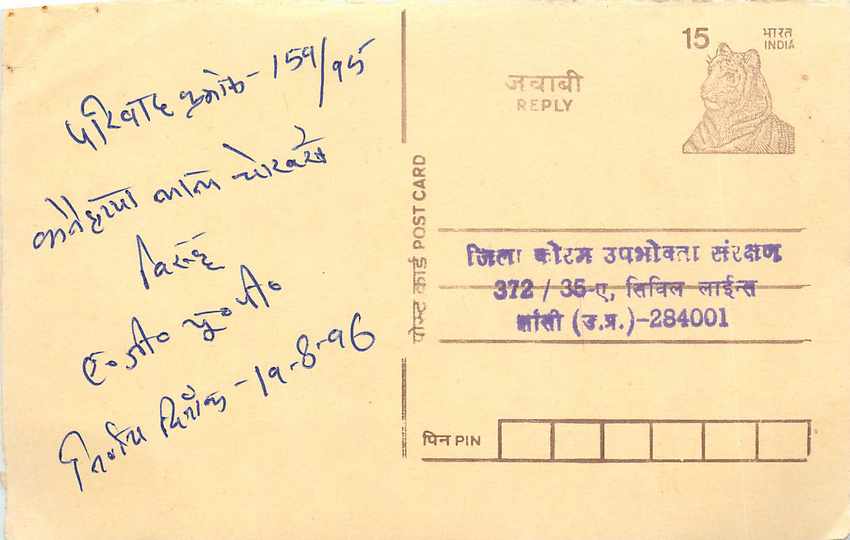 परिवाद क्रमांक- 159/95
लाल
विरुद्ध
ए० जी० यू० पी०
निर्णय दिनांक- 19-8-96
पोस्ट कार्ड POST CARD
15
भारत
INDIA
जवाबी
REPLY
जिला फोरम उपभोक्ता संरक्षण
372 / 35-ए, सिविल लाईन्स
झांसी (उ.प्र.)-284001
पिन PIN